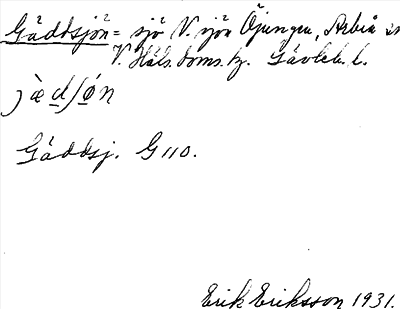 Gäddsjön = sjö V. sjön Öjungen, Arbrå sn
V. Häls. doms. hz. Gävleb. l.
jæ̀dſø̀n
Gäddsj. G 110.
Erik Eriksson 1931.